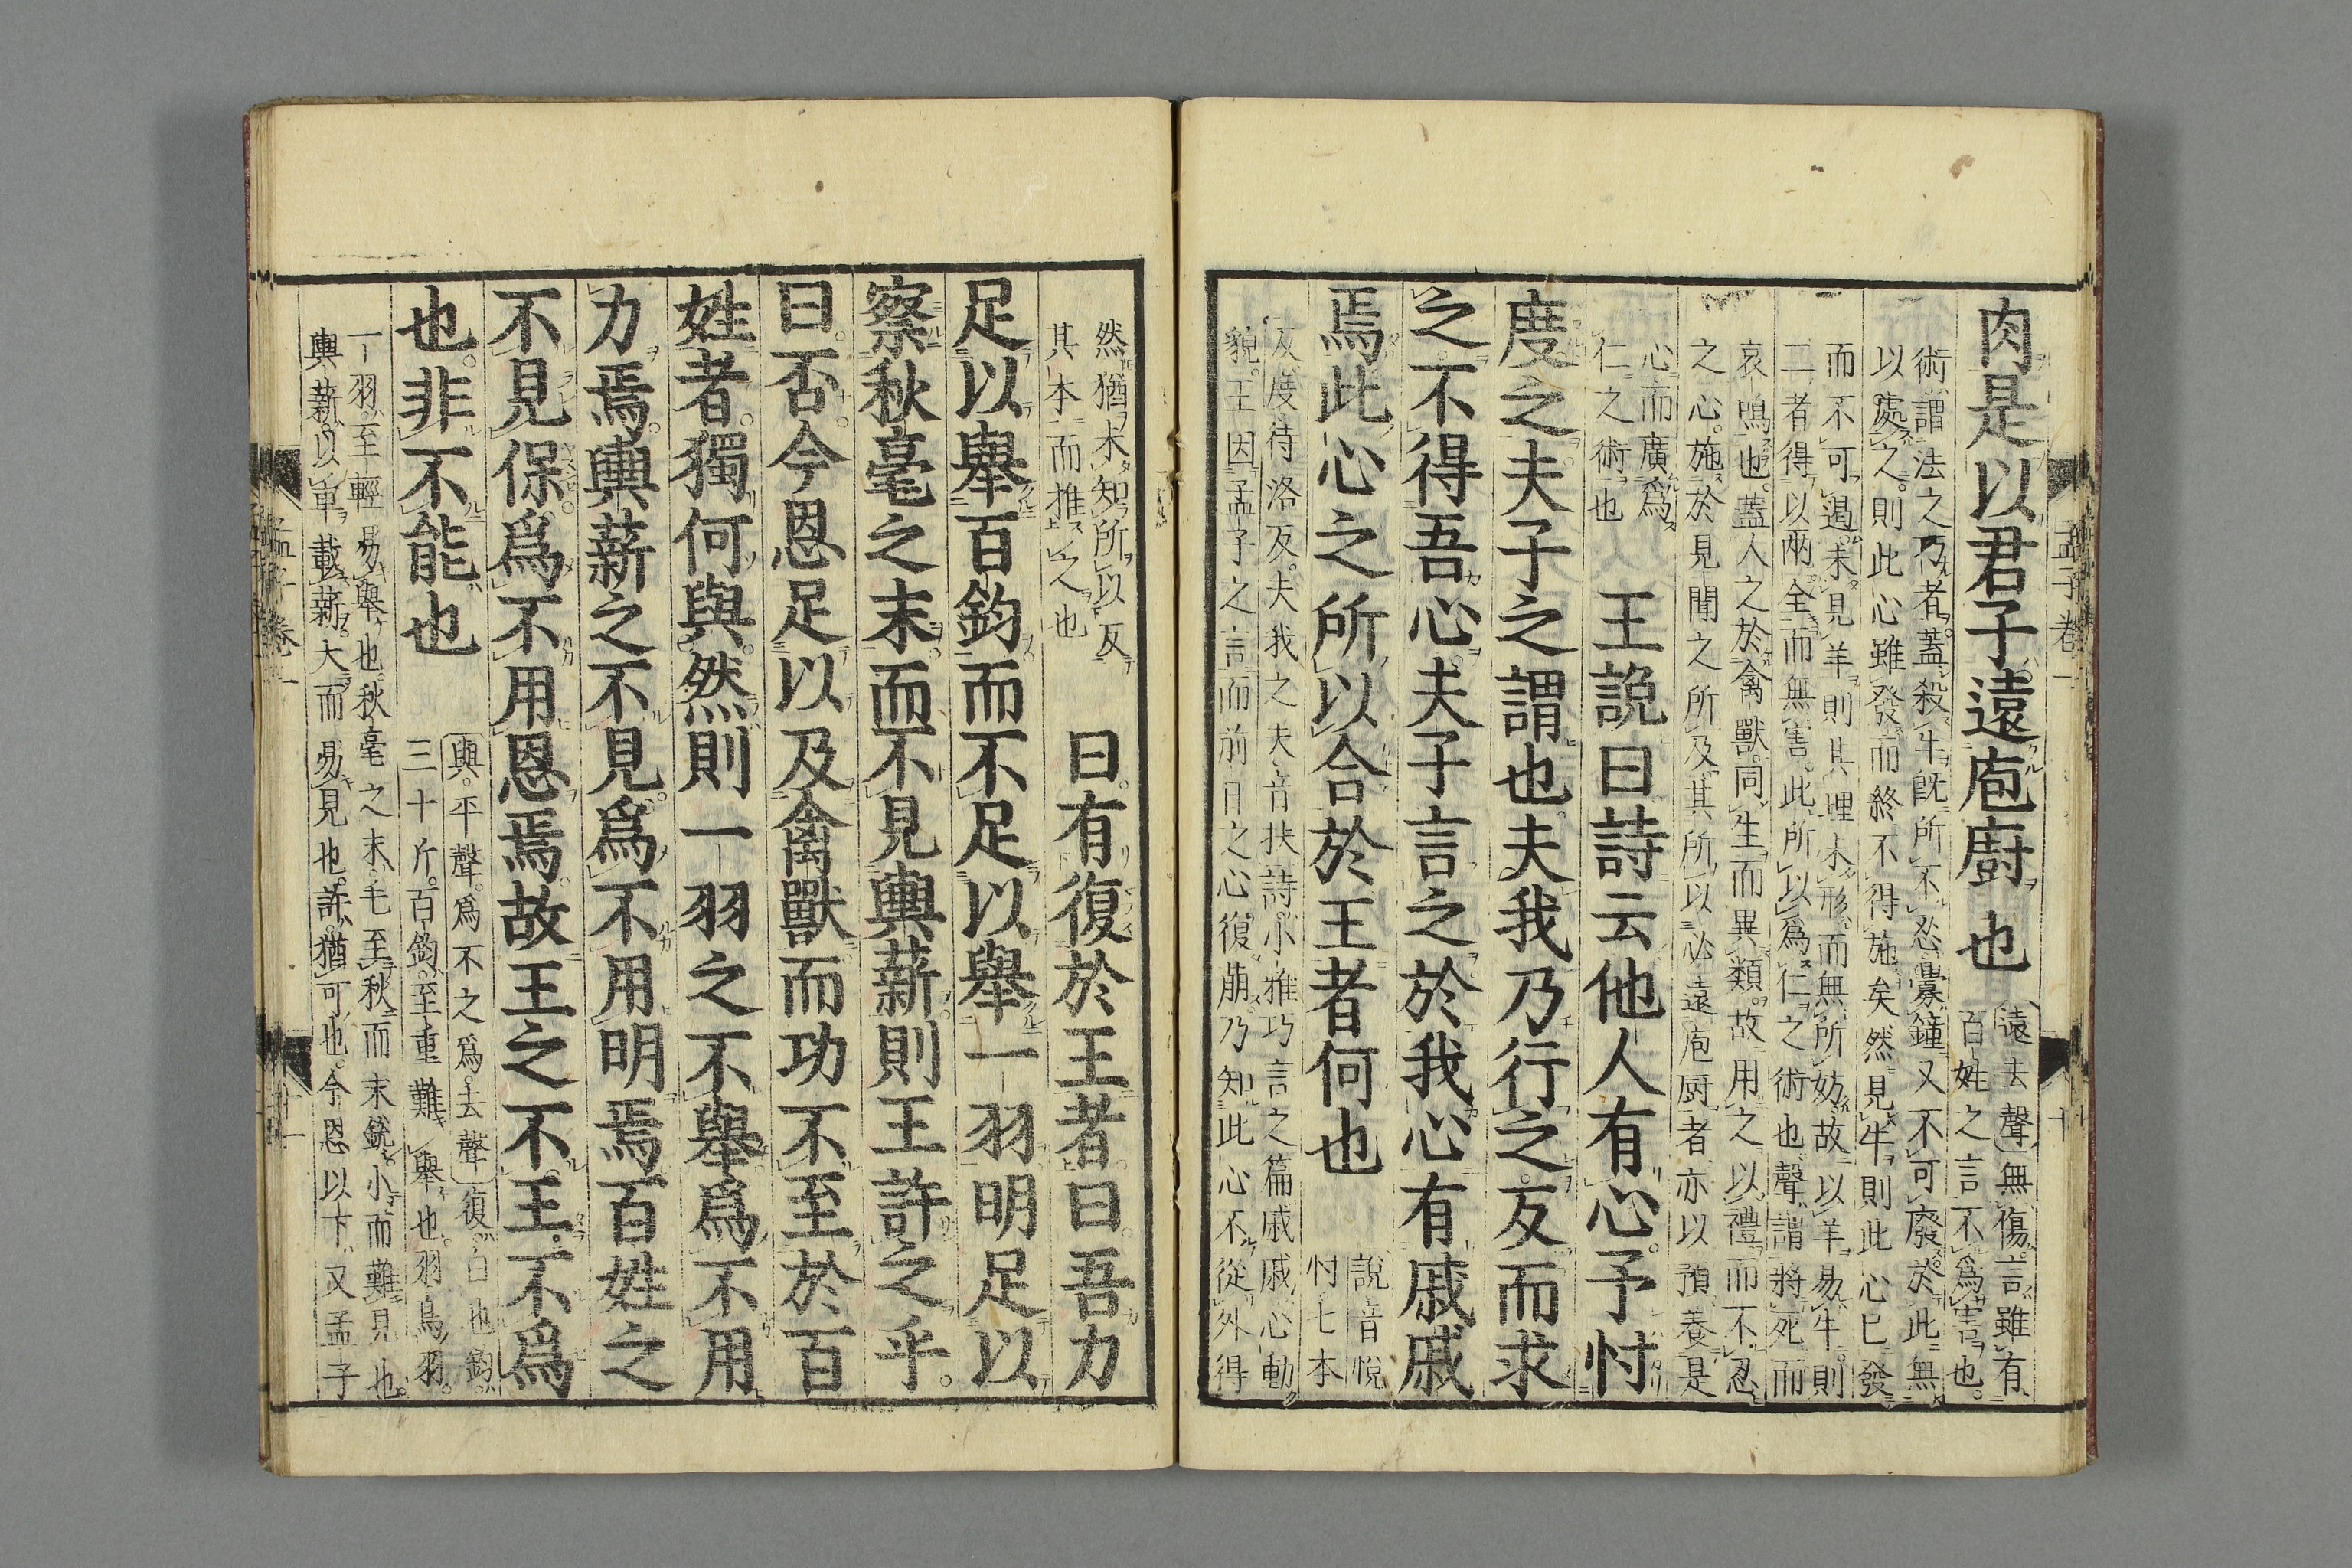 孟子卷一 十
肉是以君子遠庖廚也
遠去聲無傷言雖有
百姓之言不爲害也
術謂法之巧者蓋殺牛旣所不忍釁鐘又不可廢於此無
以處之則此心雖發而終不得施矣然見牛則此心已發
而不可遏未見羊則其理未形而無所妨故以羊易牛則
二者得以兩全而無害此所以爲仁之術也聲謂將死而
哀鳴也蓋人之於禽獸同生而異類故用之以禮而不忍
之心施於見聞之所及其所以必遠庖厨者亦以預養是
心而廣爲
仁之術也
王說曰詩云他人有心予忖
度之夫子之謂也夫我乃行之反而求
之不得吾心夫子言之於我心有戚戚
焉此心之所以合於王者何也
說音悅
忖七本
反度待洛反夫我之夫音扶詩小雅巧言之篇戚戚心動
貌王因孟子之言而前日之心復萌乃知此心不從外得
然猶未知所以反
其本而推之也
曰有復於王者曰吾力
足以舉百鈞而不足以舉一羽明足以
察秋毫之末而不見輿薪則王許之乎
曰否今恩足以及禽獸而功不至於百
姓者獨何與然則一羽之不舉爲不用
力焉輿薪之不見爲不用明焉百姓之
不見保爲不用恩焉故王之不王不爲
也非不能也
與平聲爲不之爲去聲復白也鈞
三十斤百鈞至重難舉也羽鳥羽
一羽至輕易舉也秋毫之末毛至秋而末銳小而難見也
輿薪以車載薪大而易見也許猶可也今恩以下又孟子
孟子卷一 十一